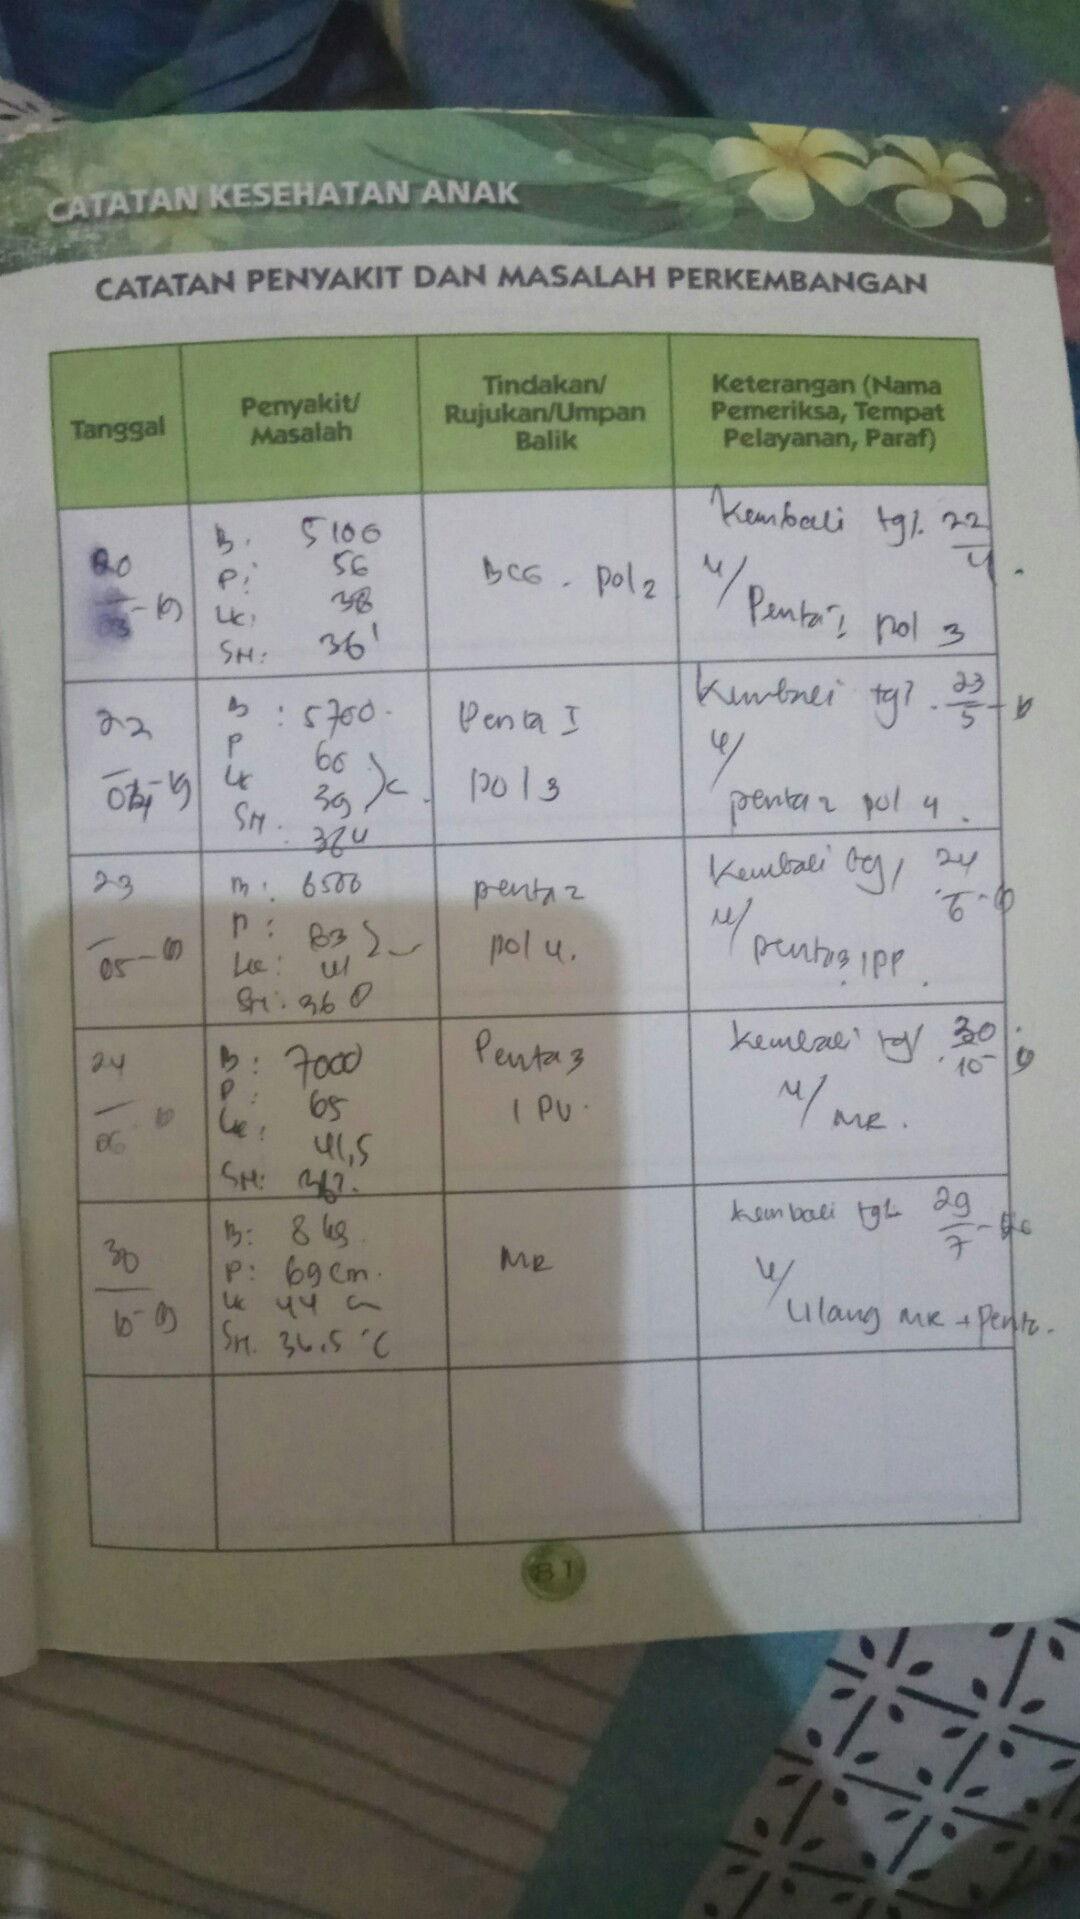 CATATAN KESEHATAN ANAK
CATATAN PENYAKIT DAN MASALAH PERKEMBANGAN
Tanggal
Penyakit/
Masalah
Tindakan/
Rujukan/Umpan
Balik
Keterangan (Nama
Pemeriksa, Tempat
Pelayanan, Paraf)
20
03-19
B: 5100
P: 56
LK: 38
SH: 361
BCG. pol 2
Kembali tgl. 22
4
u/
Penta 1 pol 3
22
04-19
B : 5700
P 60
LK 39
SH.
Penta I
pol 3
Kembali tgl. 23
5-19
u/
penta 2 pol 4.
23
05-19
B: 6500
P: 63
LK: 41
SH: 360
penta 2
pol 4.
Kembali tgl 24
6-19
u/
penta 3 IPV.
24
06-19
B: 7000
P: 65
LK: 41,5
SH: 367.
Penta 3
IPV.
Kembali tgl 30
10-19
u/ MR.
30
10-19
B: 8 kg.
P: 69 cm.
LK 44 cm
SH. 36.5 °C
MR
Kembali tgl 29
7
u/
Ulang MR + Penta.
81